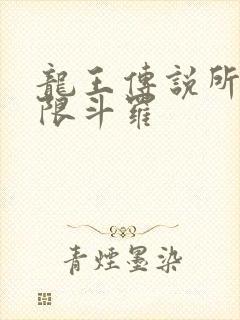 龍王傳說所
限斗羅
青煙墨染